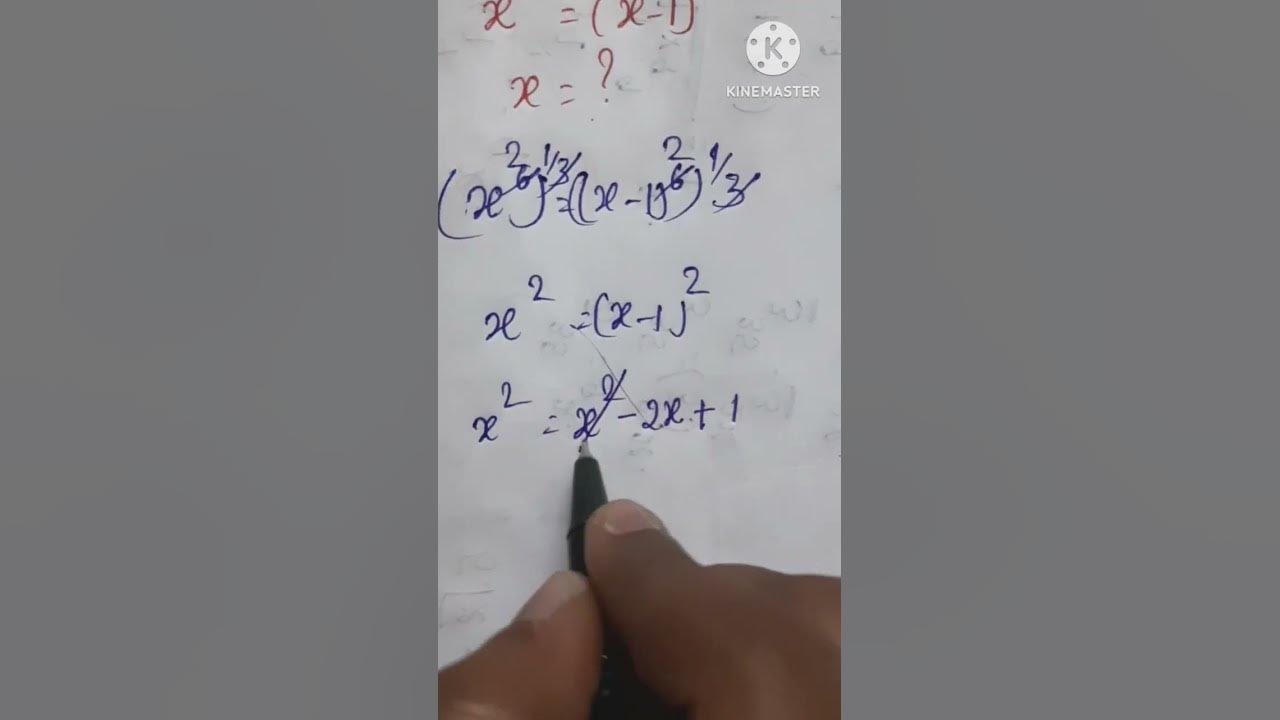 x = (x-1)
KINEMASTER
x = ?
(x⁶)^1/3 = ((x-1)⁶)^1/3
2 2
x² = (x-1)²
x² = x² - 2x + 1